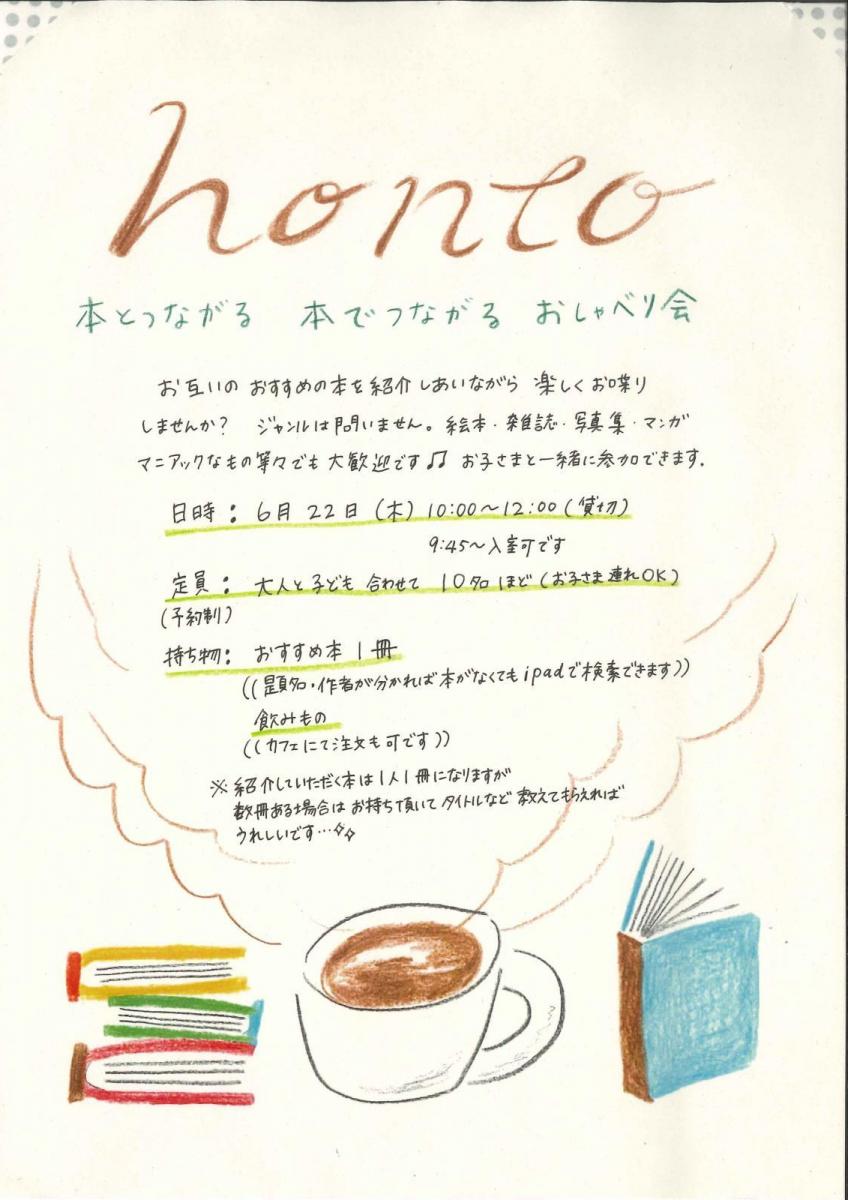 honto
本とつながる 本でつながる おしゃべり会
お互いの おすすめの本を紹介しあいながら 楽しくお喋り
しませんか? ジャンルは問いません。絵本・雑誌・写真集・マンガ
マニアックなもの等々でも大歓迎です♫ お子さまと一緒に参加できます.
日時: 6月 22日 (木) 10:00〜12:00 (貸切)
9:45〜入室可です
定員: 大人と子ども 合わせて 10名 ほど (お子さま連れOK)
(予約制)
持ち物: おすすめ本 1冊
((題名・作者が分かれば本がなくてもipadで検索できます))
飲みもの
((カフェにて注文も可です))
※紹介していただく本は1人1冊になりますが
数冊ある場合は お持ち頂いて タイトルなど 教えてもらえれば
うれしいです…✧✧